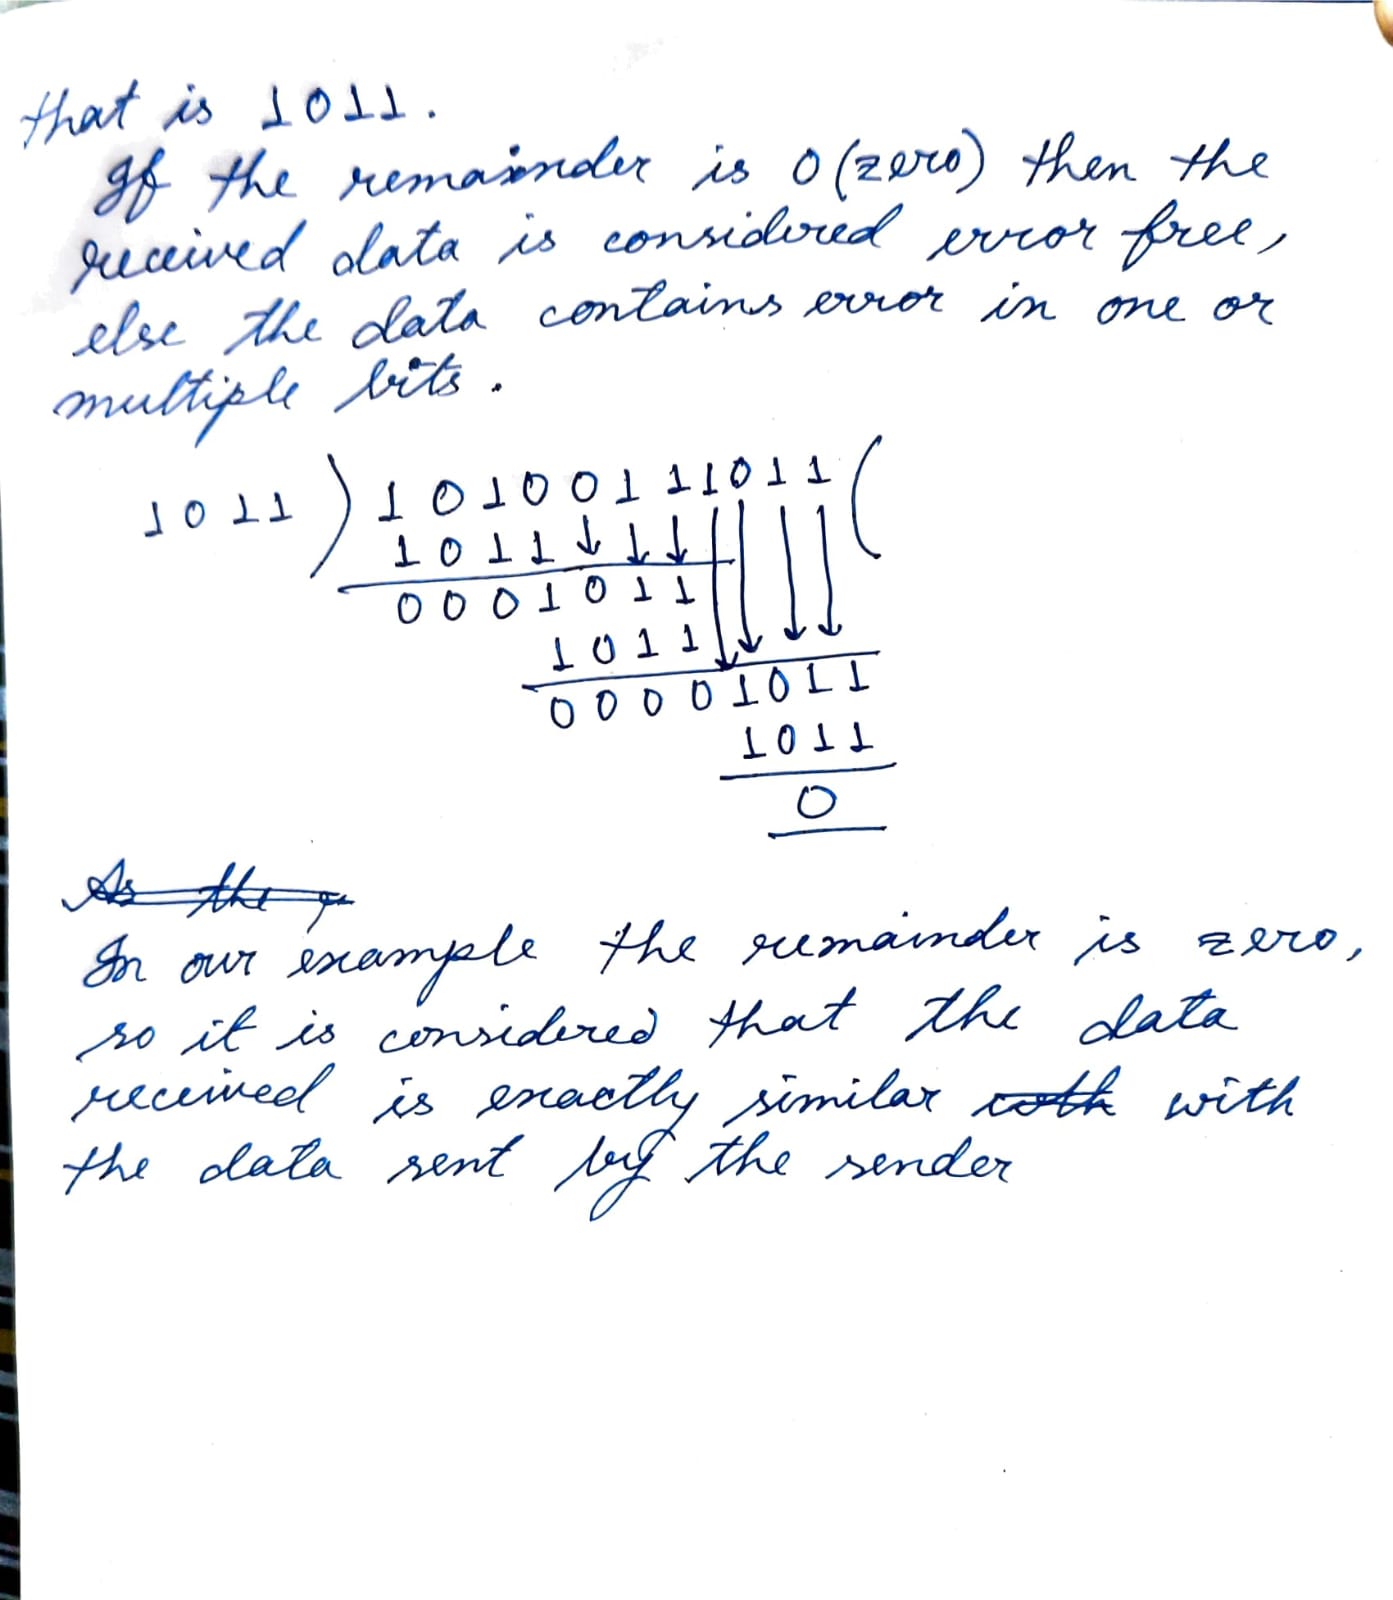 that is 1011.
If the remainder is 0 (zero) then the
received data is considered error free,
else the data contains error in one or
multiple bits.
1011 ) 10100111011 (
1011
0001011
1011
00001011
1011
0
As the
In our example the remainder is zero,
so it is considered that the data
received is exactly similar with
the data sent by the sender